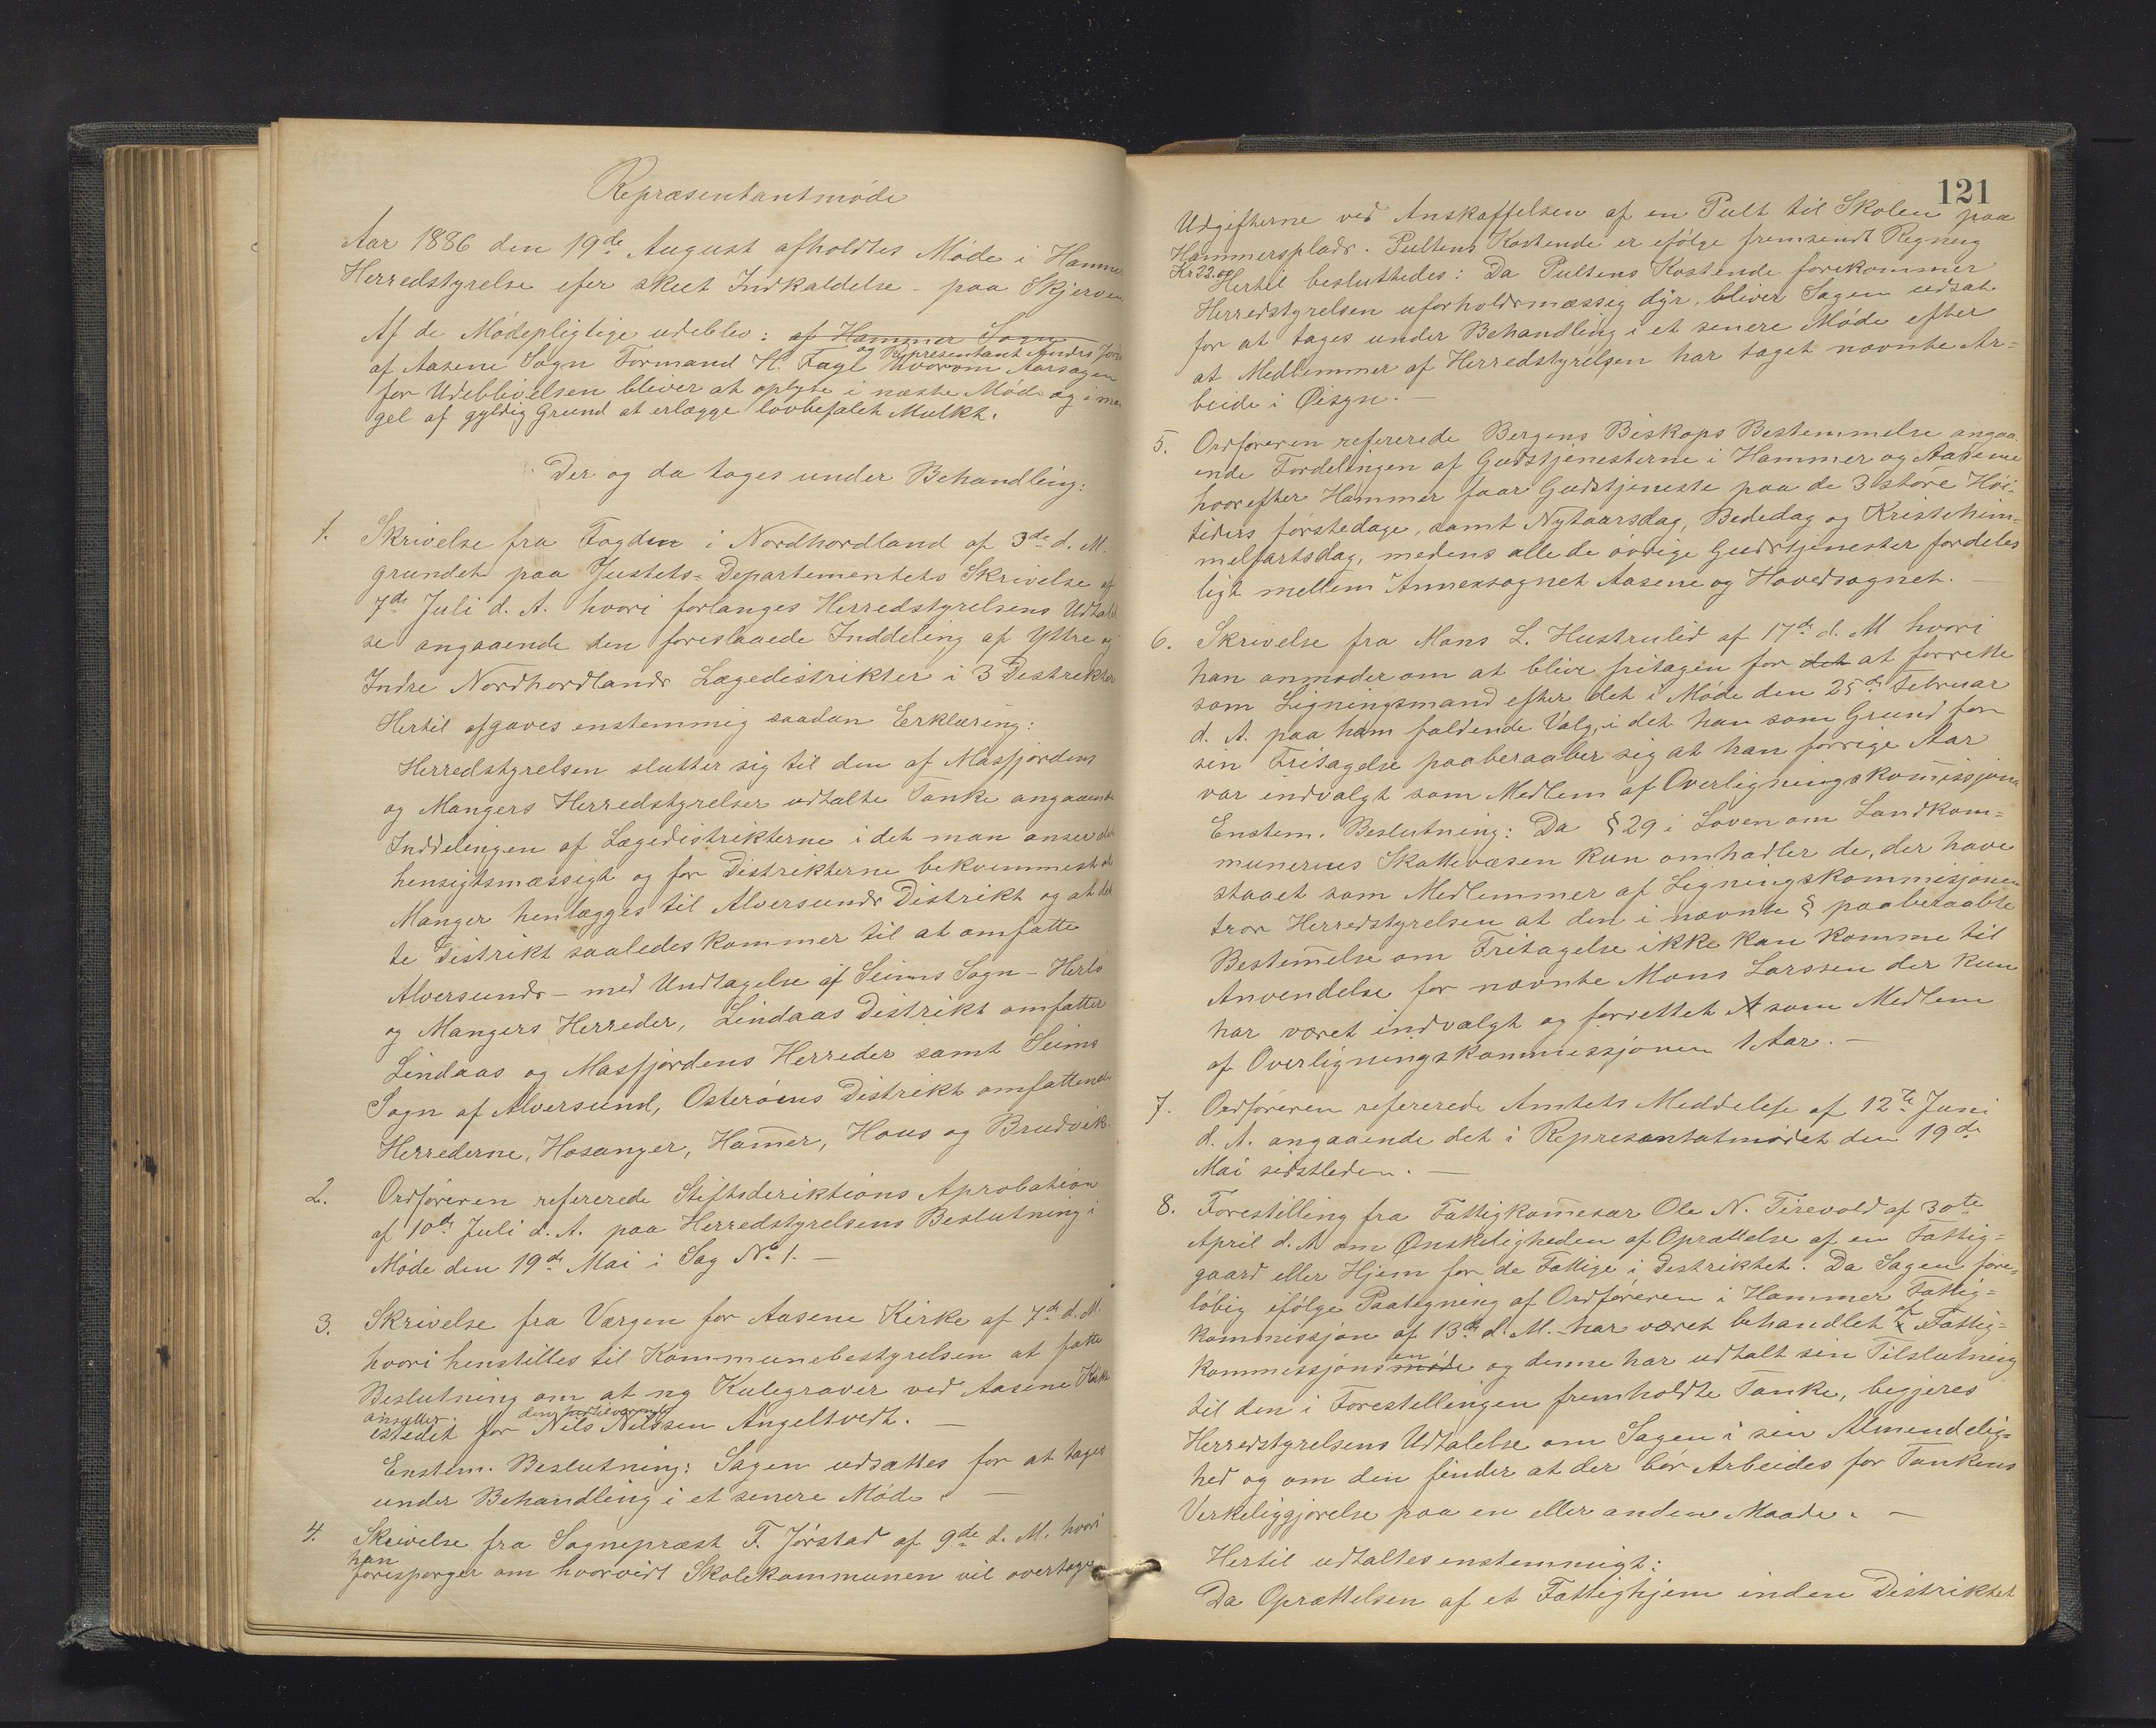 Repræsentantmøde
Aar 1886 den 19de August afholdtes Møde i Hammer
Herredstyrelse efer skeet Indkaldelse - paa Skjerven
Af de Mødepligtige udeblev: af Hammer Sogn
af Aasene Sogn Formand H. Fagt og Representant Anders Jord
Hvorom Aarsagen
for Udeblivelsen blever at oplyse i næste Møde og i man
gel af gyldig Grund at erlægge lovbefalet Mulkt.
Der og da toges under Behandling:
1. Skrivelse fra Fogden i Nordhordland af 3de d. M.
grundet paa Justets-Departementets Skrivelse af
7de Juli d. A. hvori forlanges Herredstyrelsens Udtalel
se angaaende den foreslaaede Inddeling af Yttre og
Indre Nordhordlands Lægedistrikter i 3 Distrikter
Hertil afgaves enstemmig saadan Erklæring:
Herredstyrelsen slutter sig til den af Masfjordens
og Mangers Herredstyrelser udtalte Tanke angaaende
Inddelingen af Lægedistrikterne i det man anser det
hensigtsmæssigt og for Distrikterne bekvemmest at
Manger henlægges til Alversunds Distrikt og at det
te Distrikt saaledes kommer til at omfatte
Alversunds - med Undtagelse af Seims Sogn - Herlø
og Mangers Herreder, Lindaas Distrikt omfatter
Lindaas og Masfjordens Herreder samt Seims
Sogn af Alversund, Osterøens Distrikt omfattende
Herrederne, Hosanger, Ham̅er, Hous og Brudvik.
2. Ordføreren refererede Stiftsderiktions Aprobation
af 10de Juli d. A. paa Herredstyrelsens Beslutning i
Møde den 19de Mai i Sag No 1. -
3. Skrivelse fra Værgen for Aasene Kirke af 7de d. M.
hvori henstilles til Kommunebestyrelsen at fatte
Beslutning om at ny Kulegraver ved Aasene Kirke
ansætter. den hertilværende
istedet for Nils Nilssen Angeltvedt. -
Enstem. Beslutning: Sagen udsættes for at tages
under Behandling i et senere Møde. -
4. Skrivelse fra Sognepræst F. Jørstad af 9de d. M. hvori
han
forespørger om hvorvidt Skolekommunen vil overtage
121
Udgifterne ved Anskaffelsen af en Pult til Skolen paa
Hammersplads. Pultens Kostende er efølge fremsendt Regning
Kr 22.00
Hertil besluttedes: Da Pultens Kostende forekommer
Herredstyrelsen uforholdsmæssig dyr, bliver Sagen udsat
for at tages under Behandling i et senere Møde efter
at Medlemmer af Herredstyrelsen har taget nævnte Ar-
beide i Øisyn. -
5. Ordføreren refererede Bergens Biskops Bestemmelse angaa-
ende Fordelingen af Gudstjenesterne i Hammer og Aasene
hvorefter Hammer faar Gudstjeneste paa de 3 store Høi-
tiders førstedage, samt Nytaarsdag, Bededag og Kristihim-
melfartsdag, medens alle de øvrige Gudstjenester fordeles
ligt mellem Annexsognet Aasene og Hovedsognet.
6. Skrivelse fra Mons L. Hustrulid af 17de d. M hvori
han anmoder om at blive fritagen for det at forrette
som Ligningsmand efter det i Møde den 25de Februar
d. A. paa ham faldende Valg, i det han som Grund for
sin Fritagelse paaberaaber sig at han forrige Aar
var indvalgt som Medlem af Overligningskom̅issjonen
Enstem. Beslutning: Da § 29 i Loven om Landkom-
munernes Skattevæsen kun omhadler de, der have
staaet som Medlemmer af Ligningskommissjonen
tror Herredstyrelsen at den i nævnte § paaberaabte
Bestem̅else om Fritagelse ikke kan komme til
Anvendelse for nævnte Mons Larssen der kun
har været indvalgt og forrettet A som Medlem
af Overligningskommissjonen 1 Aar. -
7. Ordføreren refererede Amtets Meddelese af 12te Juni
d. A. angaaende det i Represantatmødet den 19de
Mai sidstleden. -
8. Forestilling fra Fattigkom̅esær Ole N. Tirevold af 30te
April d. A om Ønskeligheden af Oprættelse af en Fattig-
gaard eller Hjem for de Fattige i Destriktet. Da Sagen fore-
løbig ifølge Paategning af Ordføreren i Hammer Fattig-
kommissjon af 13de d. M. har været behandlet af i Fattig-
kommissjons møde en og denne har udtalt sin Tilslutning
til den i Forestellingen fremholdte Tanke, begjeres
Herredstyrelsens Udtalelse om Sagen i sin Almendelig-
hed og om den finder at der bør Arbeides for Tankens
Verkeliggjørelse paa en eller anden Maade. -
Hertil udtaltes enstemmigt:
Da Oprættelsen af et Fattighjem inden Distriktet